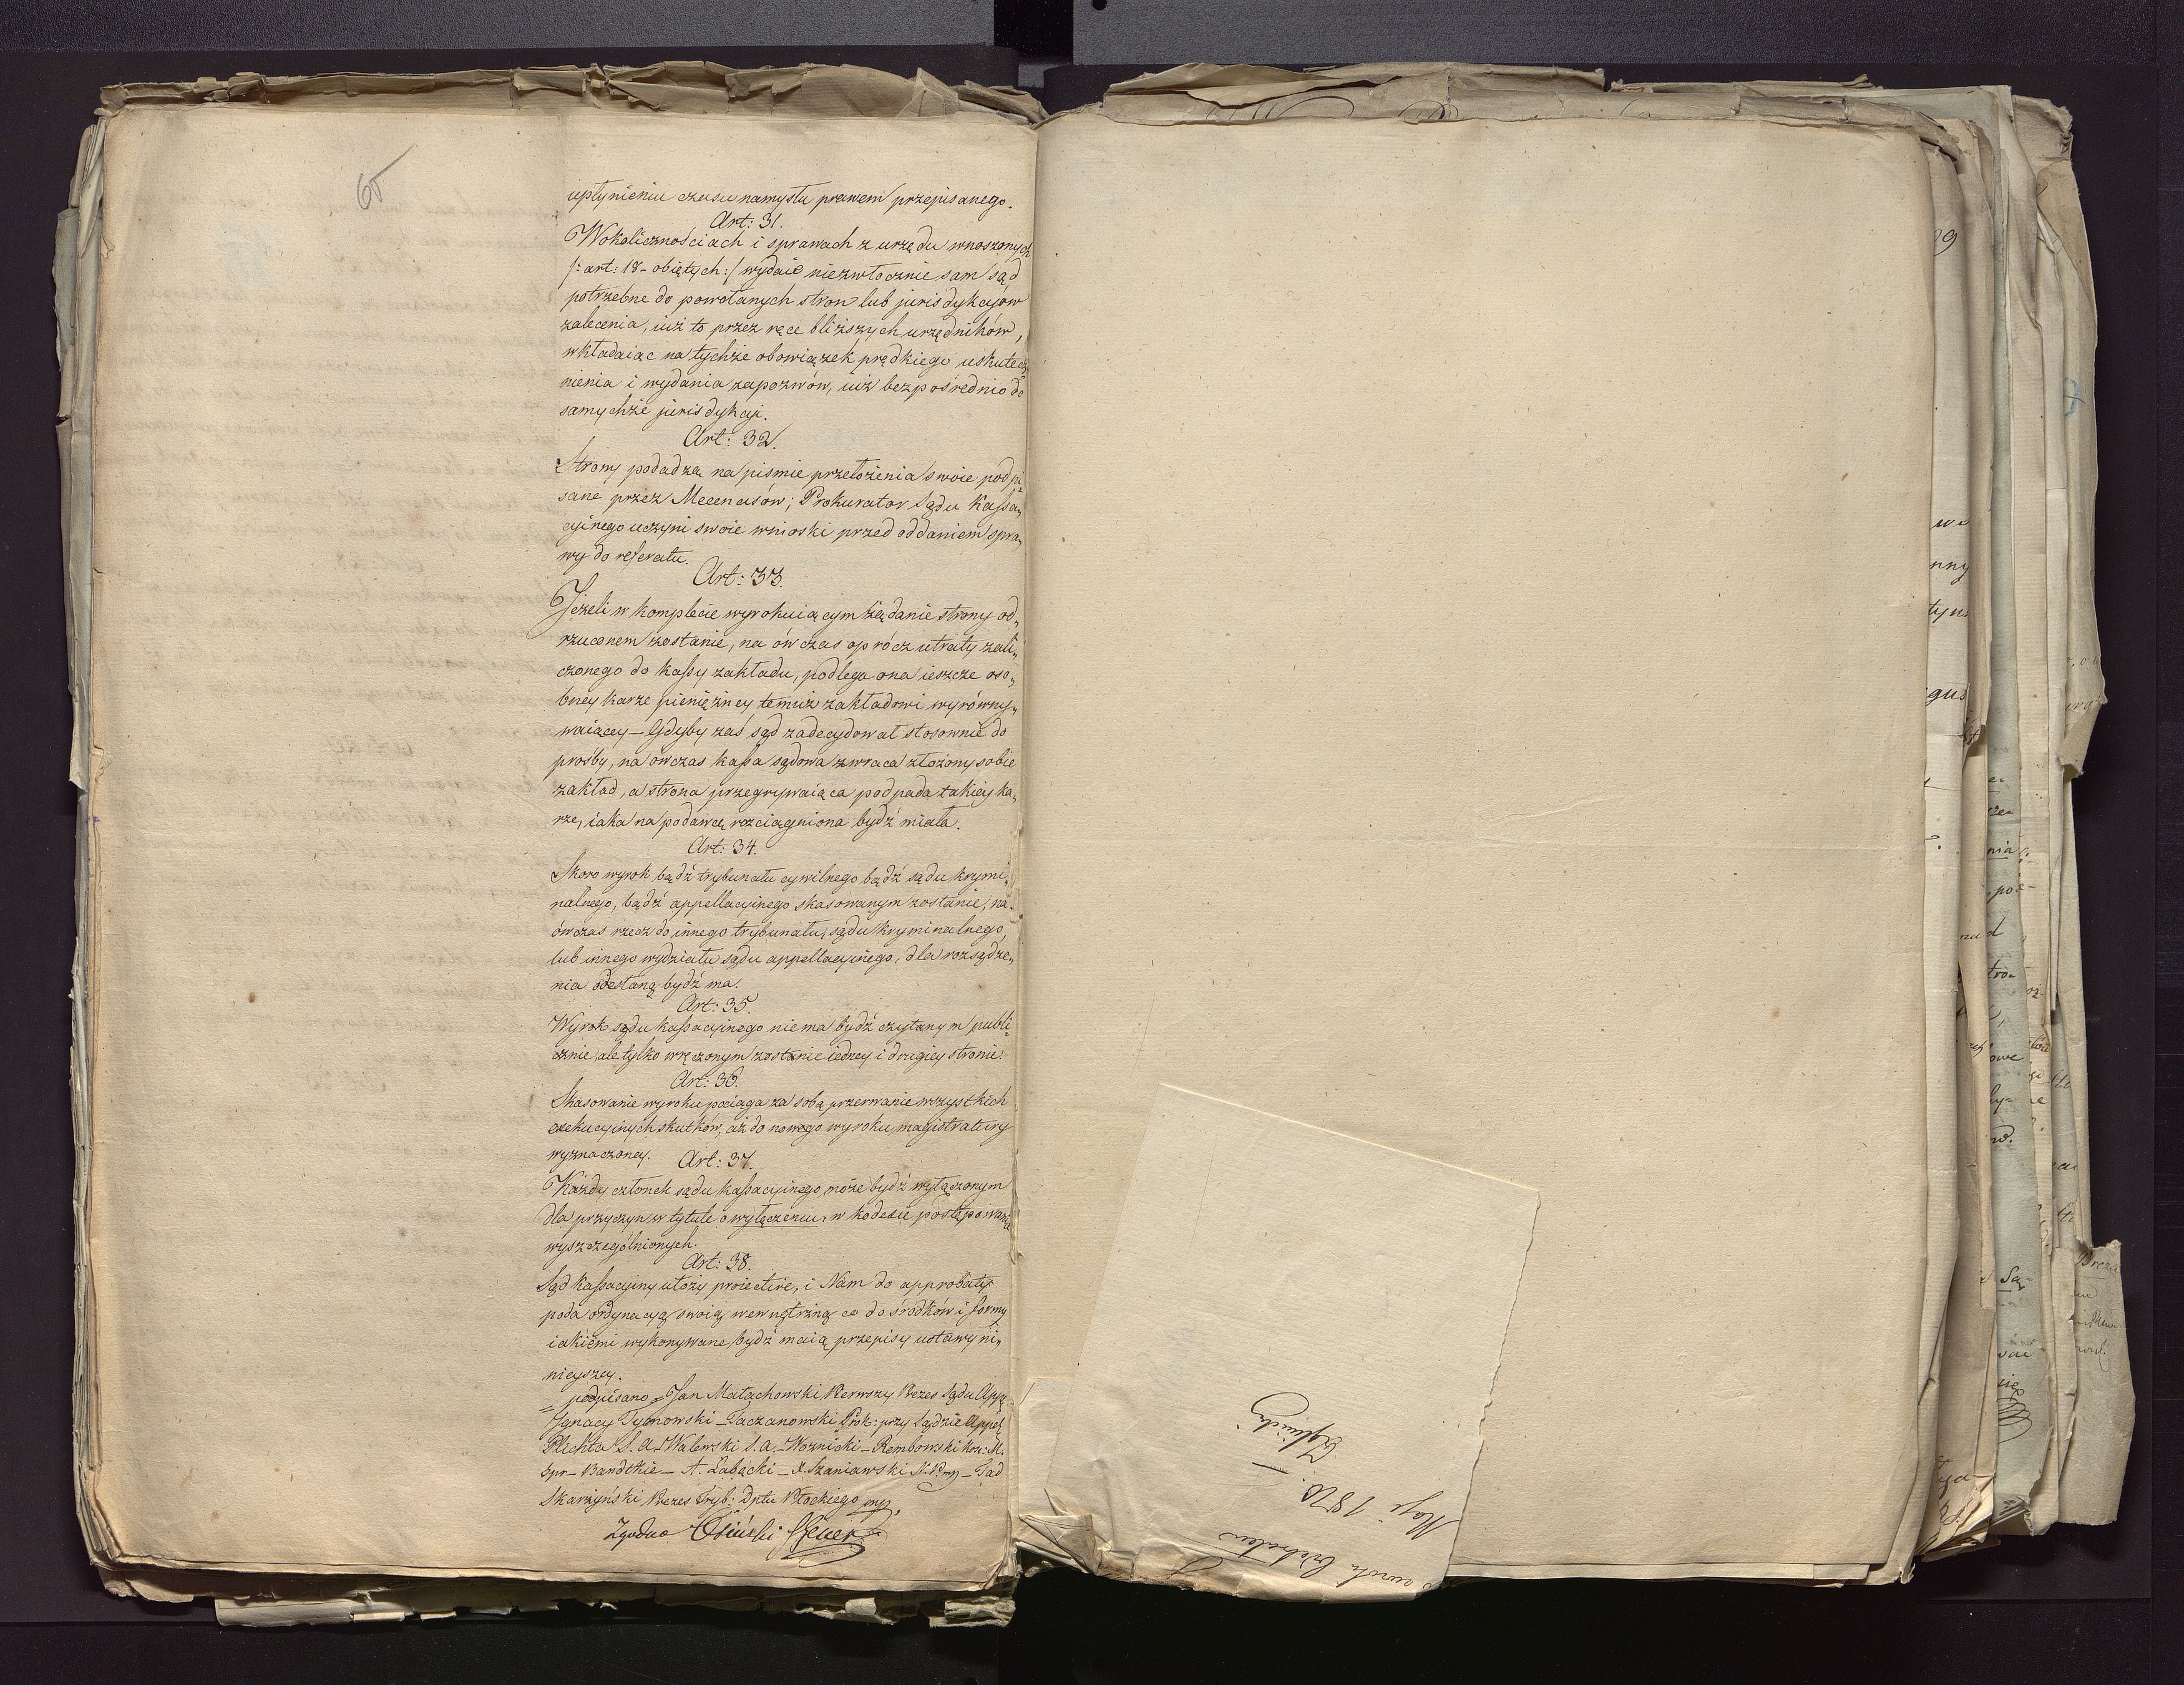 65
upłynieniu czasu namysłu prawem przepisanego.
Art: 31.
W okolicznościach i sprawach z urzędu wnoszonych
/: art: 18 - obiętych :/ wydaie niezwłocznie sam sąd
potrzebne do powołanych stron lub jurisdykcyów
zalecenia, iuż to przez ręce bliższych urzędników,
wkładaiąc na tychże obowiązek prędkiego uskutecz„
nienia i wydania zapozwów, iuż bezpośrednio do
samychże jurisdykcji.
Art: 32.
Strony podadzą na piśmie przełożenia swoie podpi„
sane przez Mecenasów; Prokurator Sądu Kassa„
cyinego uczyni swoie wnioski przed oddaniem spra„
wy do referatu.
Art: 33.
Jeżeli w komplecie wyrokuiącym żądanie strony od„
rzuconem zostanie, na ówczas oprócz utraty zali„
czonego do kassy zakładu, podlega ona ieszcze oso„
bney karze pieniężney temuż zakładowi wyrówny„
waiącey — Gdyby zaś sąd zadecydował stosownie do
prośby, na ówczas kassa sądowa zwraca złożony sobie
zakład, a strona przegrywaiąca podpada takiey ka„
rze, iaka na podawcę rozciągniona bydź miała.
Art: 34.
Skoro wyrok bądź trybunału cywilnego bądź sądu krymi„
nalnego, bądź appellacyinego skasowanym zostanie, na„
ówczas rzecz do innego trybunału, sądu kryminalnego,
lub innego wydziału sądu appellacyinego, dla rozsądze„
nia odesłaną bydź ma.
Art: 35.
Wyrok sądu kassacyinego nie ma bydź czytanym publi„
cznie, ale tylko wręczonym zostanie iedney i drugiey stronie.
Art: 36.
Skasowanie wyroku pociąga za sobą przerwanie wszystkich
exekucyinych skutków, aż do nowego wyroku magistratury
wyznaczoney.
Art: 37.
Każdy członek sądu kassacyinego może bydź wyłączonym
dla przyczyn w tytule o wyłączeniu w kodexie postępowania
wyszczególnionych.
Art: 38.
Sąd kassacyiny ułoży proiective, i Nam do approbaty
poda ordynacyą swoią wewnętrzną co do środków i formy
iakiemi wykonywane bydź maią przepisy ustawy ni„
nieyszey.
= podpisano = Jan Małachowski Pierwszy Prezes Sądu App.
Ignacy Tymowski — Taczanowski Prok: przy Sądzie Appel.
Plichta S. A. Walewski S. A. — Woznicki — Rembowski Kon: M.
Spr — Bandtkie — A. Łabęcki — X. Szaniawski — Tad
Skarżyński Prezes Tryb: Dptu Płockiego mp.
Zgodno Osiński
Maja 1820.